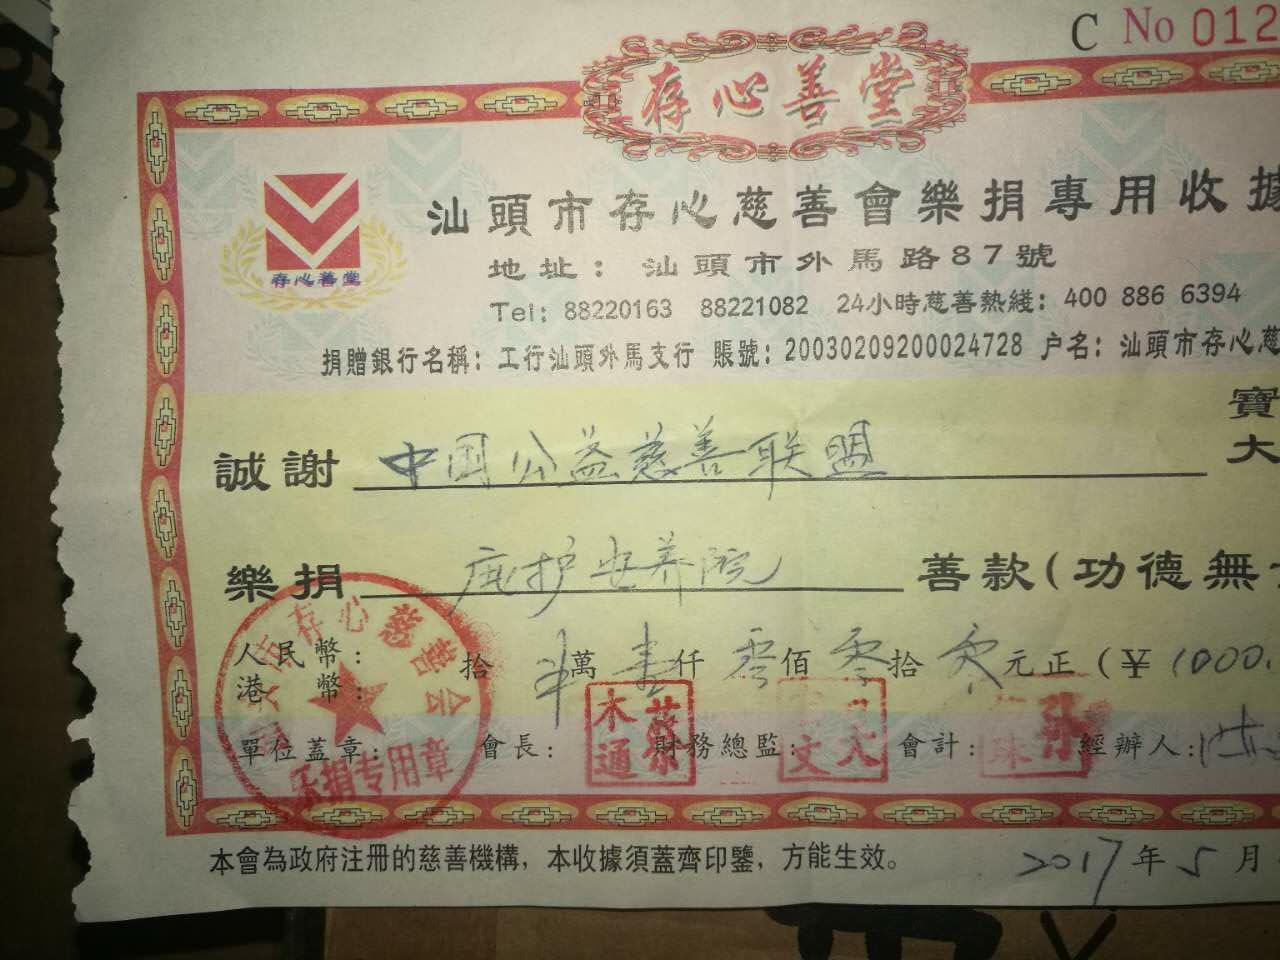 C No 012
存心善堂
存心善堂
汕頭市存心慈善會樂捐專用收據
地址：汕頭市外馬路87號
Tel: 88220163 88221082 24小時慈善熱綫：400 886 6394
捐贈銀行名稱：工行汕頭外馬支行 賬號：20030209200024728 户名：汕頭市存心慈
寶
誠謝 中国公益慈善联盟 大
樂捐 庇护安养院 善款(功德無
人民幣：
港幣： 拾 萬 壹仟 零佰 零拾 元正(￥1000.
單位蓋章： 會長： 財務總監： 會計： 經辦人：
市存心慈善会
乐捐专用章
本會為政府注册的慈善機構，本收據須蓋齊印鑒，方能生效。 2017年5月